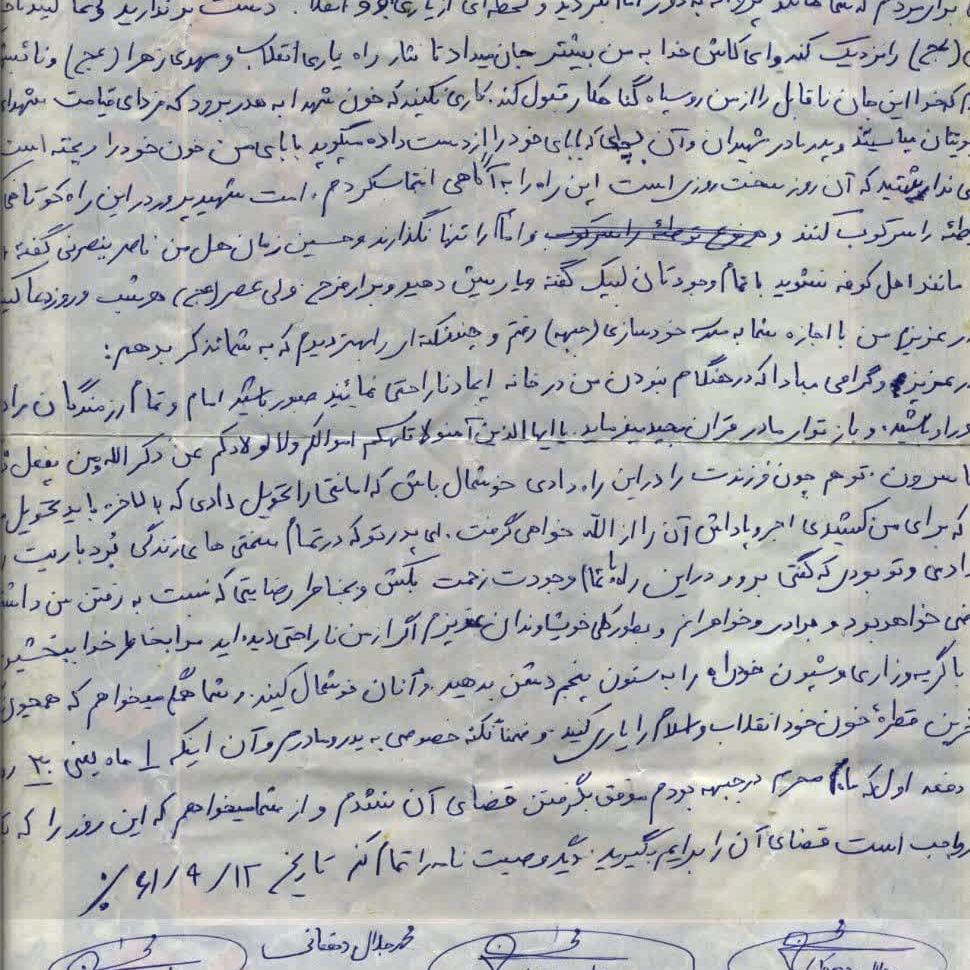 برای مردم که شما مانند پروانه به دور امام بگردید و لحظه‌ای از یاری او و انقلاب دست برندارید و دعا کنید تا
(عج) را نزدیک کند و ای کاش خدا به من بیشتر جان میداد تا نثار راه یاری انقلاب و مهدی زهرا (عج) و نائب
که خدا این جان ناقابل را از من روسیاه گناهکار قبول کند. کاری نکنید که خون شهدا به هدر برود که فردای قیامت شهدا
و پدر مادر شهیدان و آن بچه‌ای که بابای خود را از دست داده میگوید بابای من خون خود را ریخته است
که آن روز سخت روزی است این راه را به آگاهی انتخاب کردم. امت شهید پرور در این راه کوتاهی
را سرکوب کنند و امام را تنها نگذارند و حسین زمان هل من ناصر ینصرنی گفته
مانند اهل کوفه نشوید با تمام وجودتان لبیک گفته و یاریش دهید و برای فرج ولی عصر (عج) هر شب و روز دعا کنید
عزیزم من با اجازه شما به خودسازی (جبهه) رفتم و چند نکته ای را بهتر دیدم که به شما تذکر بدهم:
عزیز و گرامی مبادا که در هنگام نبودن من در خانه ایجاد ناراحتی نمائید صبور باشید امام و تمام رزمندگان را
باشید. و باز تو ای مادر قرآن مجید میفرماید. یا ایها الذین آمنو لا تلهکم اموالکم ولا اولادکم عن ذکر الله ومن یفعل
تو هم چون فرزندت را در این راه دادی خوشحال باش که امانتی را تحویل دادی که بالاخره باید تحویل
که برای من کشیدی اجر و پاداش آن را از الله خواهی گرفت. ای پدر تو که در تمام سختی های زندگی
دادی و تو بودی که گفتی برو و در این راه با تمام وجودت زحمت بکش و بخاطر رضایتی که نسبت به رفتن من
خواهد بود و برادر و خواهرانم و بطور کلی خویشاوندان عزیزم اگر از من ناراحتی دیده اید مرا بخاطر خدا ببخشید
با گریه و زاری و شیون خود راه را به ستون پنجم دشمن بدهید و آنان خوشحال کنید. و شما میخواهم که همچون
قطرهٔ خون خود انقلاب و اسلام را یاری کنید. و ضمناً نکته خصوصی به پدر و مادرم و آن اینکه ۱ ماه یعنی ۳۰
دفعه اول که ماه محرم در جبهه بودم موفق بگرفتن قضای آن نشدم و از شما میخواهم که این روز را که
واجب است قضای آن را برایم بگیرید. دیگر وصیت نامه را تمام کنم تاریخ ۶۱/۹/۱۲
محمد جلال دهقانی